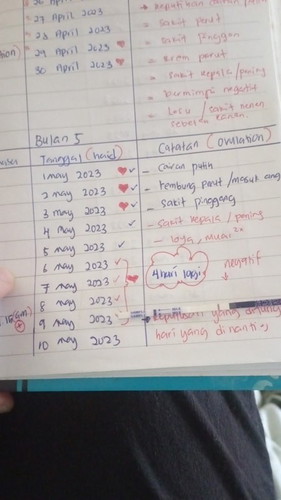 26 April 2023
27 April 2023
- sakit perut
28 April 2023
- sakit pinggang
29 April 2023
30 April 2023
- sakit kepala / pening
- bermimpi negatif
- lesu / sakit
sebelah kanan.
Bulan 5
Tanggal (haid)
Catatan (ovulation)
1 may 2023
- cairan putih
2 may 2023
- kembung perut / masuk ang
3 may 2023
- sakit pinggang
4 may 2023
- sakit kepala / pening
5 may 2023
- loya, mual 2x
6 may 2023
4 hari lagi
negatif
7 may 2023
8 may 2023
9 may 2023
yang
10 may 2023
hari yang dinanti